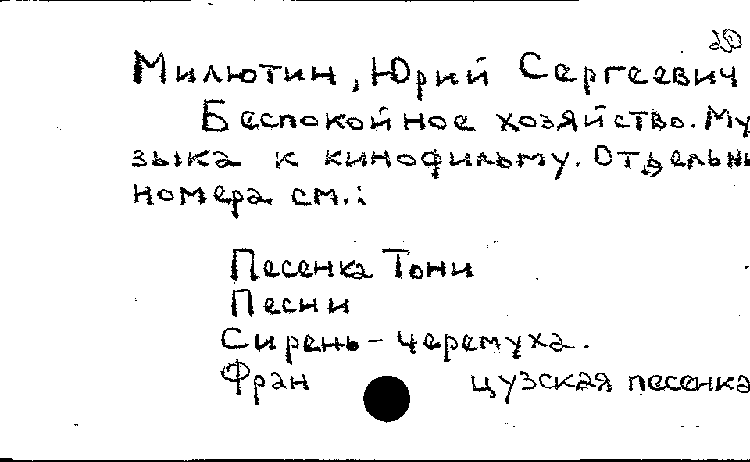 20
Милютин, Юрий Сергеевич
Беспокойное хозяйство. Му
зыка к кинофильму. Отдельны
номера см.:
Песенка Тони
Песни
Сирень-черемуха.
Французская песенка